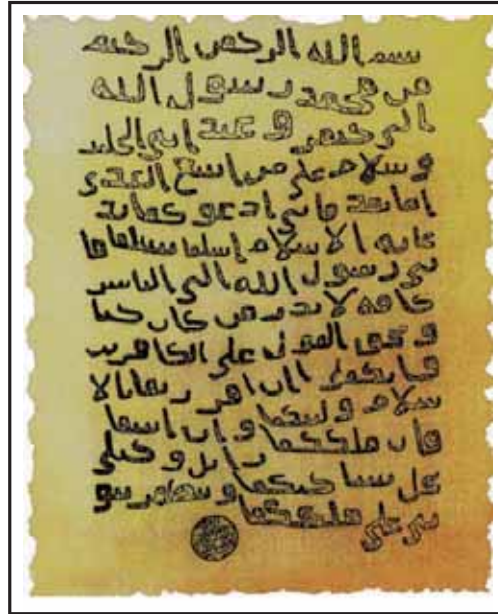 بسم الله الرحمن الرحيم
من محمد رسول الله
الى جيفر و عبد ابني الجلند
و سلام على من اتبع الهدى
اما بعد فاني ادعو كما بد
عايه الاسلام اسلما تسلما فا
ني رسول الله الى الناس
كافه لانذر من كان حيا
و يحق القول على الكافرين
فانكما ان اقر رتما بالا
سلام وليتكما و ان ابيتما
فان ملككما زائل و خيلي
تحل بساحتكما و تظهر نبو
تي على ملككما